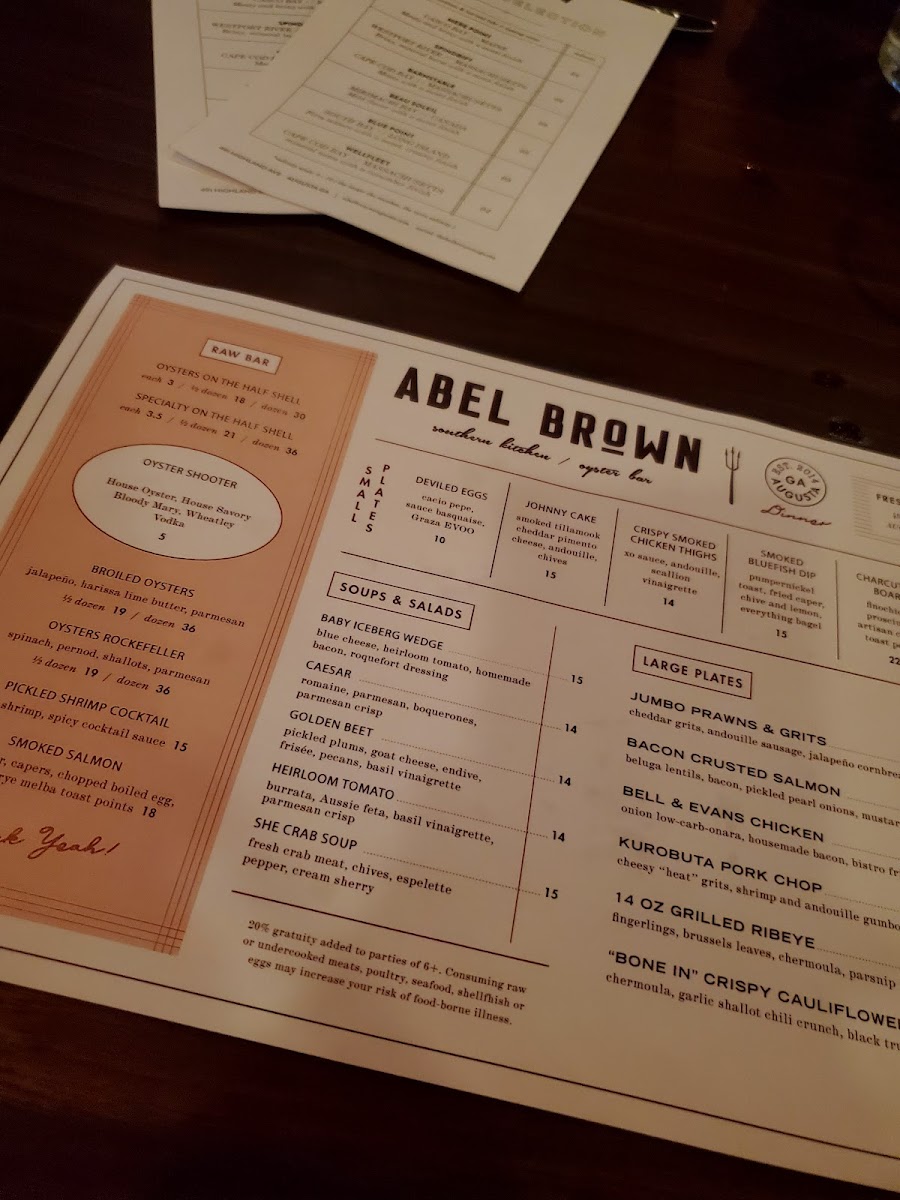 SELECTION
WESTPORT RIVER MASSACHUSETTS
BARNSTABLE
CAPE COD BAY MASSACHUSETTS
BEAU SOLEIL
MIRIMACHI BAY CANADA
BLUE POINT
SOUTH BAY LONG ISLAND
WELLFLEET
CAPE COD BAY MASSACHUSETTS
RAW BAR
OYSTERS ON THE HALF SHELL
each 3 / ½ dozen 18 / dozen 30
SPECIALTY ON THE HALF SHELL
each 3.5 / ½ dozen 21 / dozen 36
OYSTER SHOOTER
House Oyster, House Savory
Bloody Mary, Wheatley
Vodka
5
BROILED OYSTERS
jalapeño, harissa lime butter, parmesan
½ dozen 19 / dozen 36
OYSTERS ROCKEFELLER
spinach, pernod, shallots, parmesan
½ dozen 19 / dozen 36
PICKLED SHRIMP COCKTAIL
shrimp, spicy cocktail sauce 15
SMOKED SALMON
capers, chopped boiled egg,
rye melba toast points 18
Yeah!
ABEL BROWN
southern kitchen / oyster bar
EST. 2014
GA
AUGUSTA
Dinner
FRES
SMALL
PLATES
DEVILED EGGS
cacio pepe,
sauce basquaise,
Graza EVOO
10
JOHNNY CAKE
smoked tillamook
cheddar pimento
cheese, andouille,
chives
15
CRISPY SMOKED
CHICKEN THIGHS
xo sauce, andouille,
scallion
vinaigrette
14
SMOKED
BLUEFISH DIP
pumpernickel
toast, fried caper,
chive and lemon,
everything bagel
15
CHARCUT
BOAR
finochi
prosci
artisan c
toast p
22
SOUPS & SALADS
BABY ICEBERG WEDGE
blue cheese, heirloom tomato, homemade
bacon, roquefort dressing 15
CAESAR
romaine, parmesan, boquerones,
parmesan crisp 14
GOLDEN BEET
pickled plums, goat cheese, endive,
frisée, pecans, basil vinaigrette 14
HEIRLOOM TOMATO
burrata, Aussie feta, basil vinaigrette,
parmesan crisp 14
SHE CRAB SOUP 15
fresh crab meat, chives, espelette
pepper, cream sherry
20% gratuity added to parties of 6+. Consuming raw
or undercooked meats, poultry, seafood, shellfhish or
eggs may increase your risk of food-borne illness.
LARGE PLATES
JUMBO PRAWNS & GRITS
cheddar grits, andouille sausage, jalapeño cornbre
BACON CRUSTED SALMON
beluga lentils, bacon, pickled pearl onions, mustar
BELL & EVANS CHICKEN
onion low-carb-onara, housemade bacon, bistro fr
KUROBUTA PORK CHOP
cheesy “heat” grits, shrimp and andouille gumbo
14 OZ GRILLED RIBEYE
fingerlings, brussels leaves, chermoula, parsnip
“BONE IN” CRISPY CAULIFLOWER
chermoula, garlic shallot chili crunch, black tru